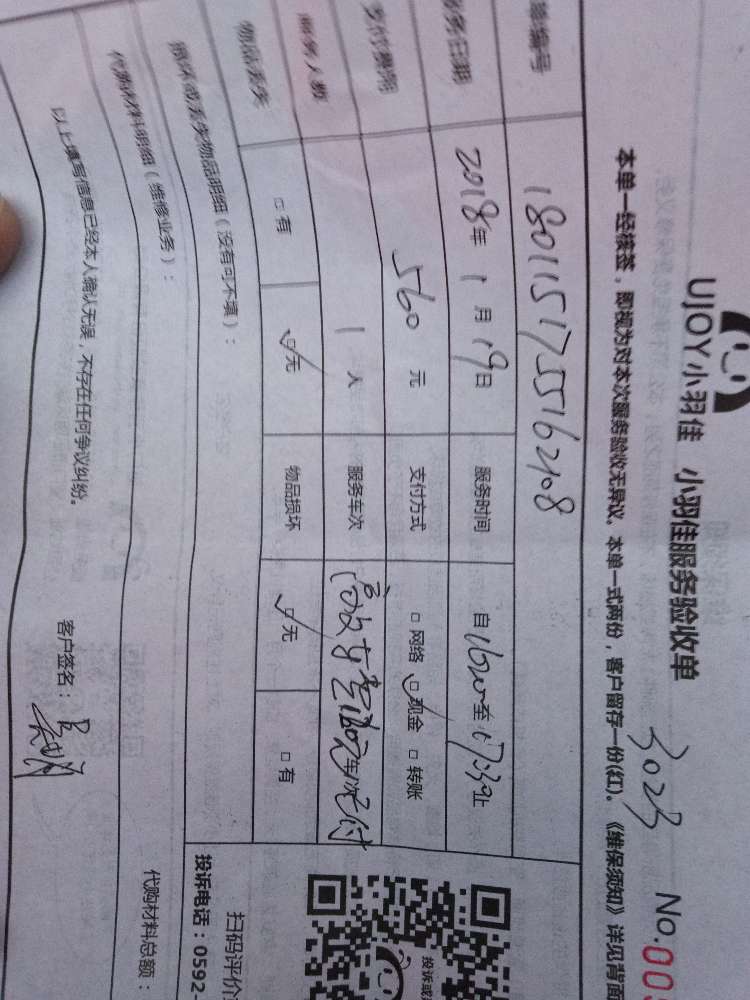 UJOY小羽佳 小羽佳服务验收单
3023 No.00
本单一经接签，即视为对本次服务验收无异议。本单一式两份，客户留存一份(红)。《维保须知》详见背面
单编号 1801151755162108
服务日期 2018年1月19日 服务时间 自16:20至17:30止
支付费用 560元 支付方式 □网络 ☑现金 □转账
服务人数 1人 服务车次
物品丢失 □有 ☑无 物品损坏 ☑无 □有
损坏或丢失物品明细（没有可不填）：
扫码评价
投诉电话：0592-
代购材料明细（维修业务）：
代购材料总额：
以上填写信息已经本人确认无误，不存在任何争议纠纷。 客户签名：
投诉或